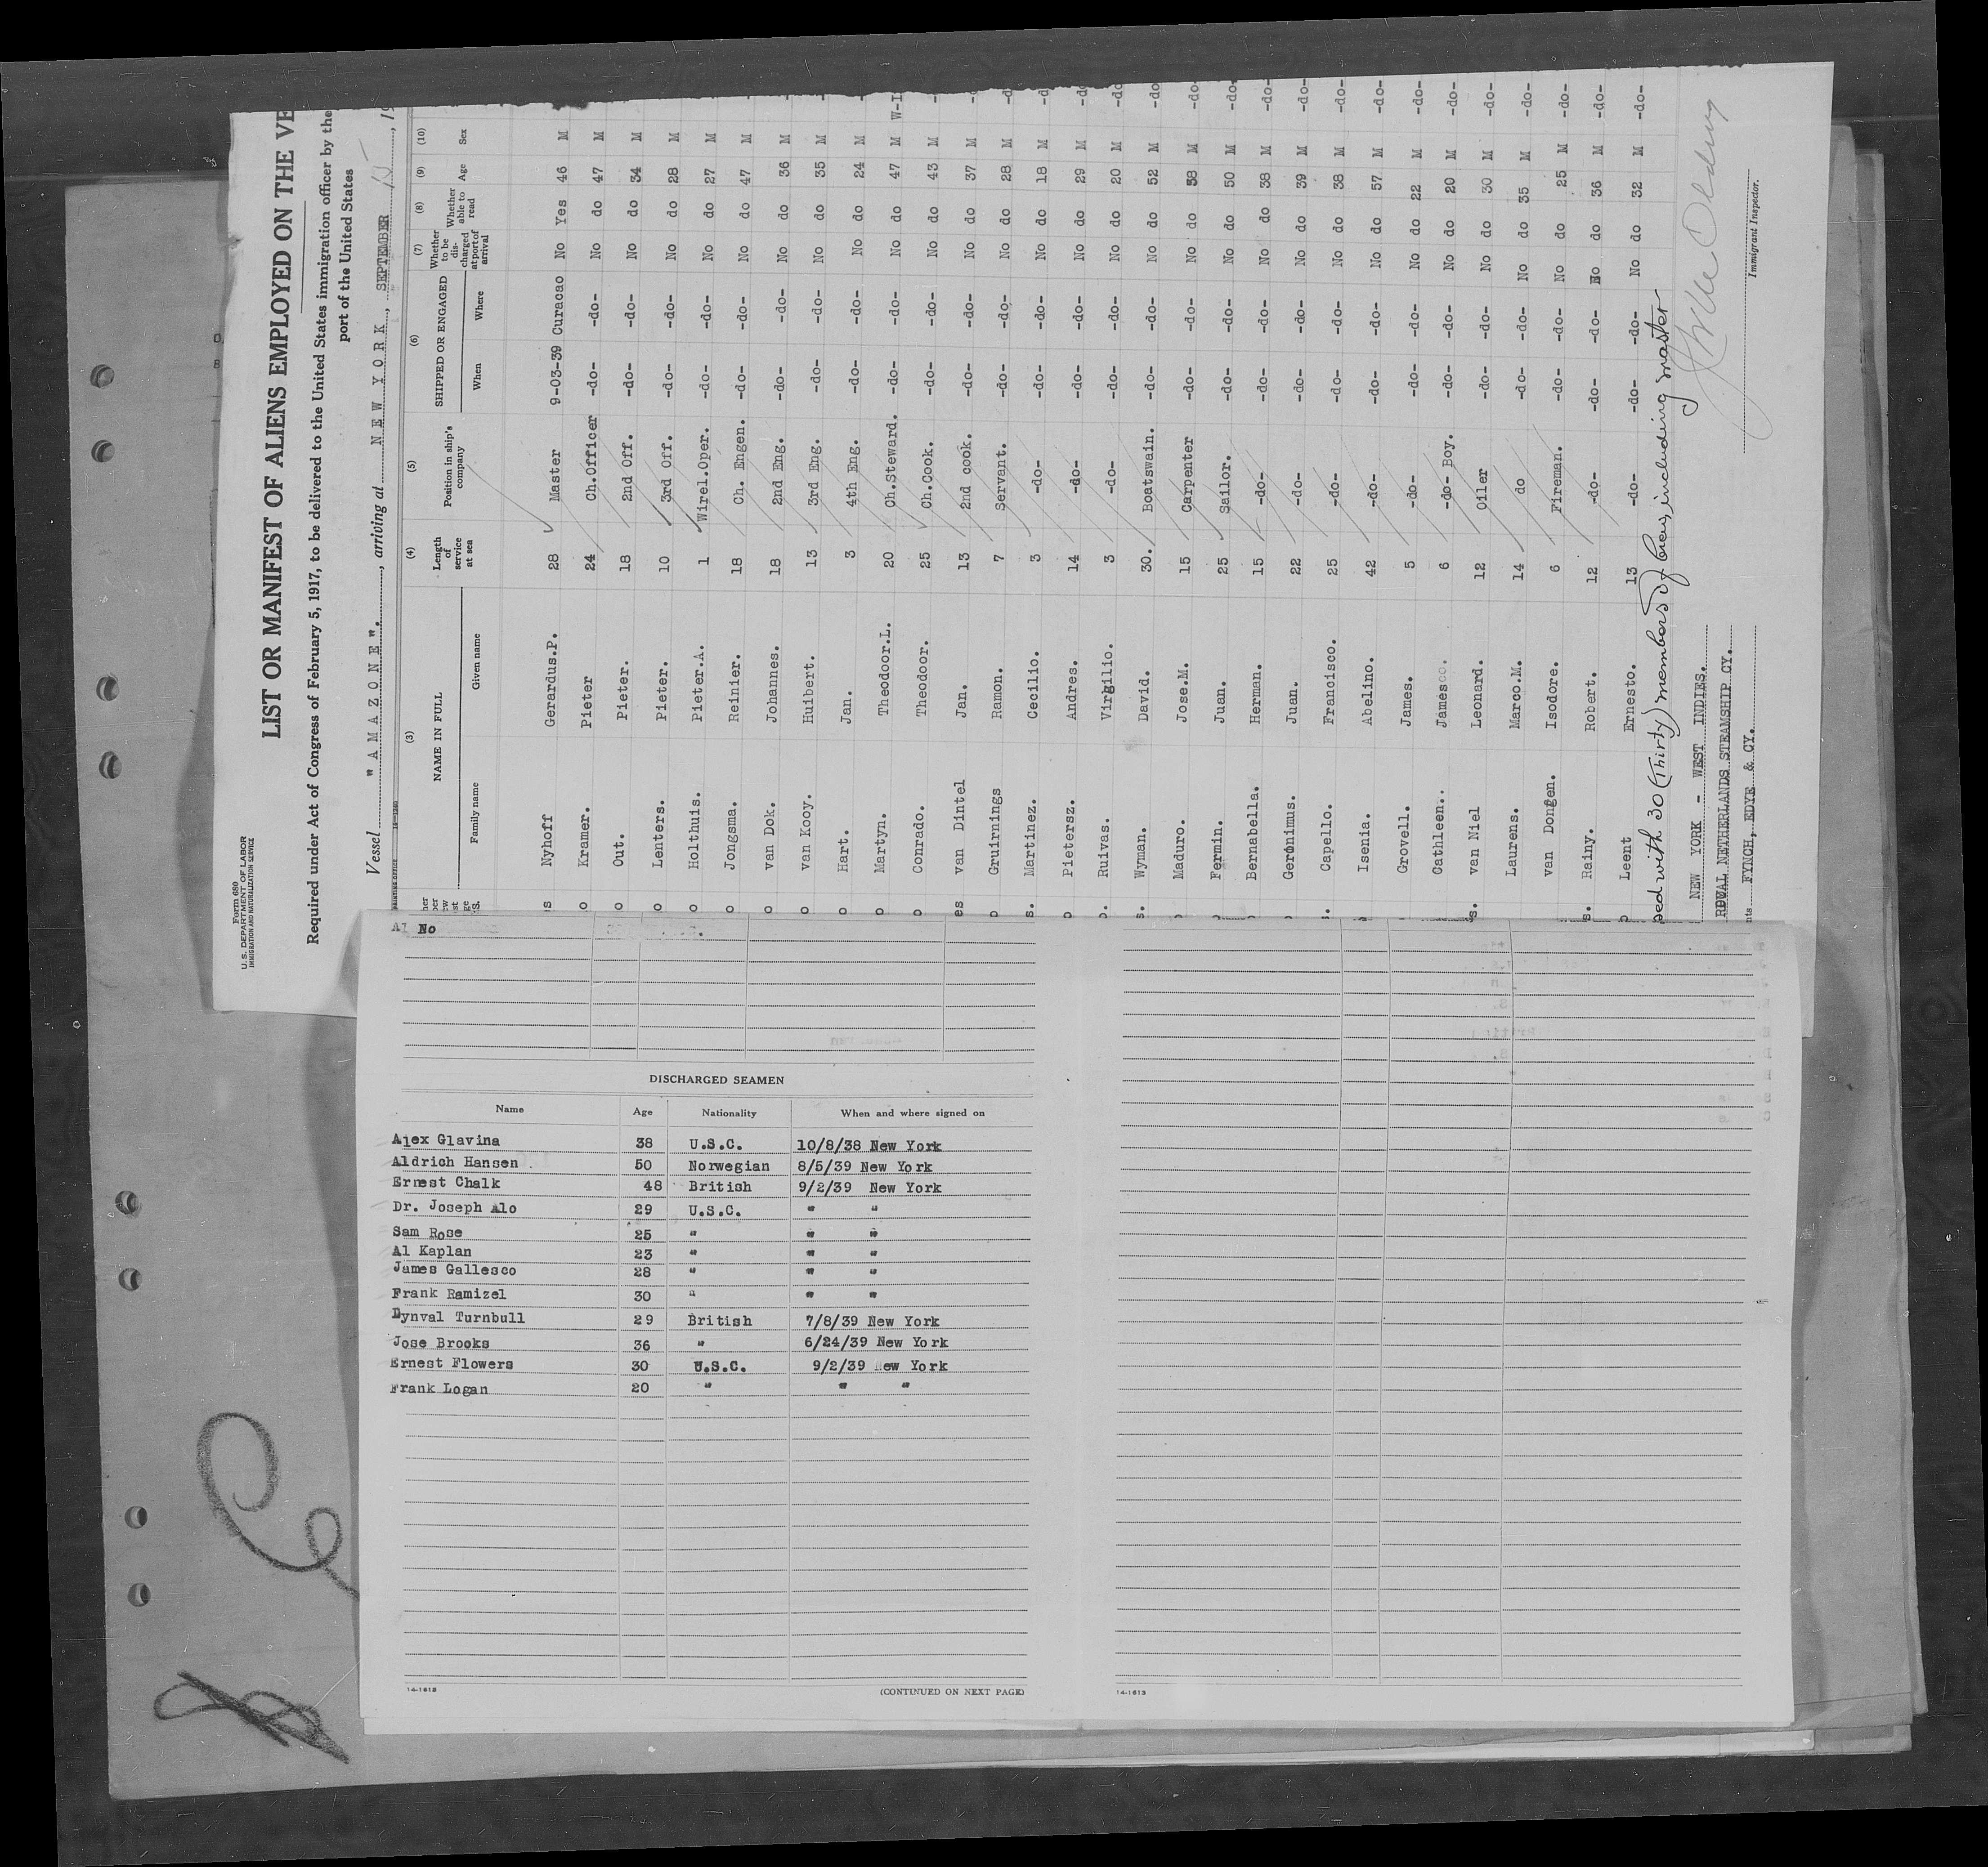 Form 680
U. S. DEPARTMENT OF LABOR
IMMIGRATION AND NATURALIZATION SERVICE
LIST OR MANIFEST OF ALIENS EMPLOYED ON THE VE
Required under Act of Congress of February 5, 1917, to be delivered to the United States immigration officer by the
port of the United States
Vessel "AMAZONE". , arriving at NEW YORK , SEPTEMBER 15 , 19
(3) (4) (5) (6) (7) (8) (9) (10)
NAME IN FULL Length of service at sea Position in ship's company SHIPPED OR ENGAGED Whether to be discharged at port of arrival Whether able to read Age Sex
Family name Given name When Where
Nyhoff Gerardus.P. 28 Master 9-03-39 Curacao No Yes 46 M
Kramer. Pieter 24 Ch.Officer -do- -do- No do 47 M
Out. Pieter. 18 2nd Off. -do- -do- No do 34 M
Lenters. Pieter. 10 3rd Off. -do- -do- No do 28 M
Holthuis. Pieter.A. 1 Wirel.Oper. -do- -do- No do 27 M
Jongsma. Reinier. 18 Ch. Engen. -do- -do- No do 47 M
van Dok. Johannes. 18 2nd Eng. -do- -do- No do 36 M
van Kooy. Huibert. 13 3rd Eng. -do- -do- No do 35 M
Hart. Jan. 3 4th Eng. -do- -do- No do 24 M
Martyn. Theodoor.L. 20 Ch.Steward. -do- -do- No do 47 M W-I
Conrado. Theodoor. 25 Ch.Cook. -do- -do- No do 43 M
van Dintel Jan. 13 2nd cook. -do- -do- No do 37 M
Gruirnings Ramon. 7 Servant. -do- -do- No do 28 M
Martinez. Cecilio. 3 -do- -do- -do- No do 18 M
Pietersz. Andres. 14 -do- -do- -do- No do 29 M -do
Ruivas. Virgilio. 3 -do- -do- -do- No do 20 M -do
Wyman. David. 30. Boatswain. -do- -do- No do 52 M -do
Maduro. Jose.M. 15 Carpenter -do- -do- No do 38 M -do-
Fermin. Juan. 25 Sailor. -do- -do- No do 50 M -do-
Bernabella. Herman. 15 -do- -do- -do- No do 38 M -do-
Geronimus. Juan. 22 -do- -do- -do- No do 39 M -do-
Capello. Francisco. 25 -do- -do- -do- No do 38 M -do-
Isenia. Abelino. 42 -do- -do- -do- No do 57 M -do-
Grovell. James. 5 -do- -do- -do- No do 22 M -do-
Cathleen.. James 6 -do- Boy. -do- -do- No do 20 M -do-
van Niel Leonard. 12 Oiler -do- -do- No do 30 M -do-
Laurens. Marco.M. 14 do -do- -do- No do 35 M -do-
van Dongen. Isodore. 6 Fireman. -do- -do- No do 25 M -do-
Rainy. Robert. 12 -do- -do- -do- No do 36 M -do-
Leent Ernesto. 13 -do- -do- -do- No do 32 M -do-
sed with 30 (Thirty) members of crew, including master
NEW YORK - WEST INDIES.
ROYAL NETHERLANDS STEAMSHIP CY.
FYNCH, EDYE & CY.
Immigrant Inspector.
Al No
DISCHARGED SEAMEN
Name Age Nationality When and where signed on
Alex Glavina 38 U.S.C. 10/8/38 New York
Aldrich Hansen 50 Norwegian 8/5/39 New York
Ernest Chalk 48 British 9/2/39 New York
Dr. Joseph Alo 29 U.S.C. " "
Sam Rose 25 " " "
Al Kaplan 23 " " "
James Gallesco 28 " " "
Frank Ramizel 30 " " "
Dynval Turnbull 29 British 7/8/39 New York
Jose Brooks 36 " 6/24/39 New York
Ernest Flowers 30 U.S.C. 9/2/39 New York
Frank Logan 20 " " "
14-1613 (CONTINUED ON NEXT PAGE)
14-1613